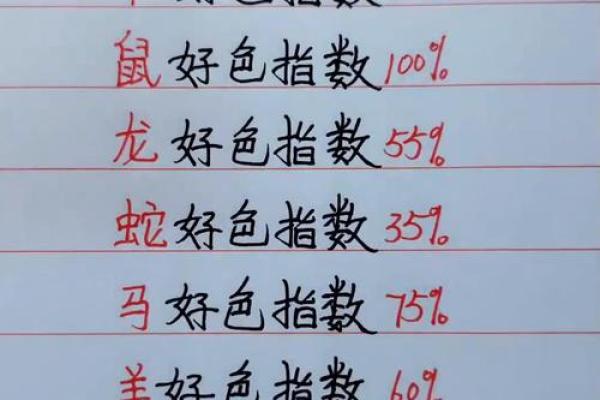 鼠好色指数100%
龙好色指数55%
蛇好色指数35%
马好色指数75%
羊好色指数60%